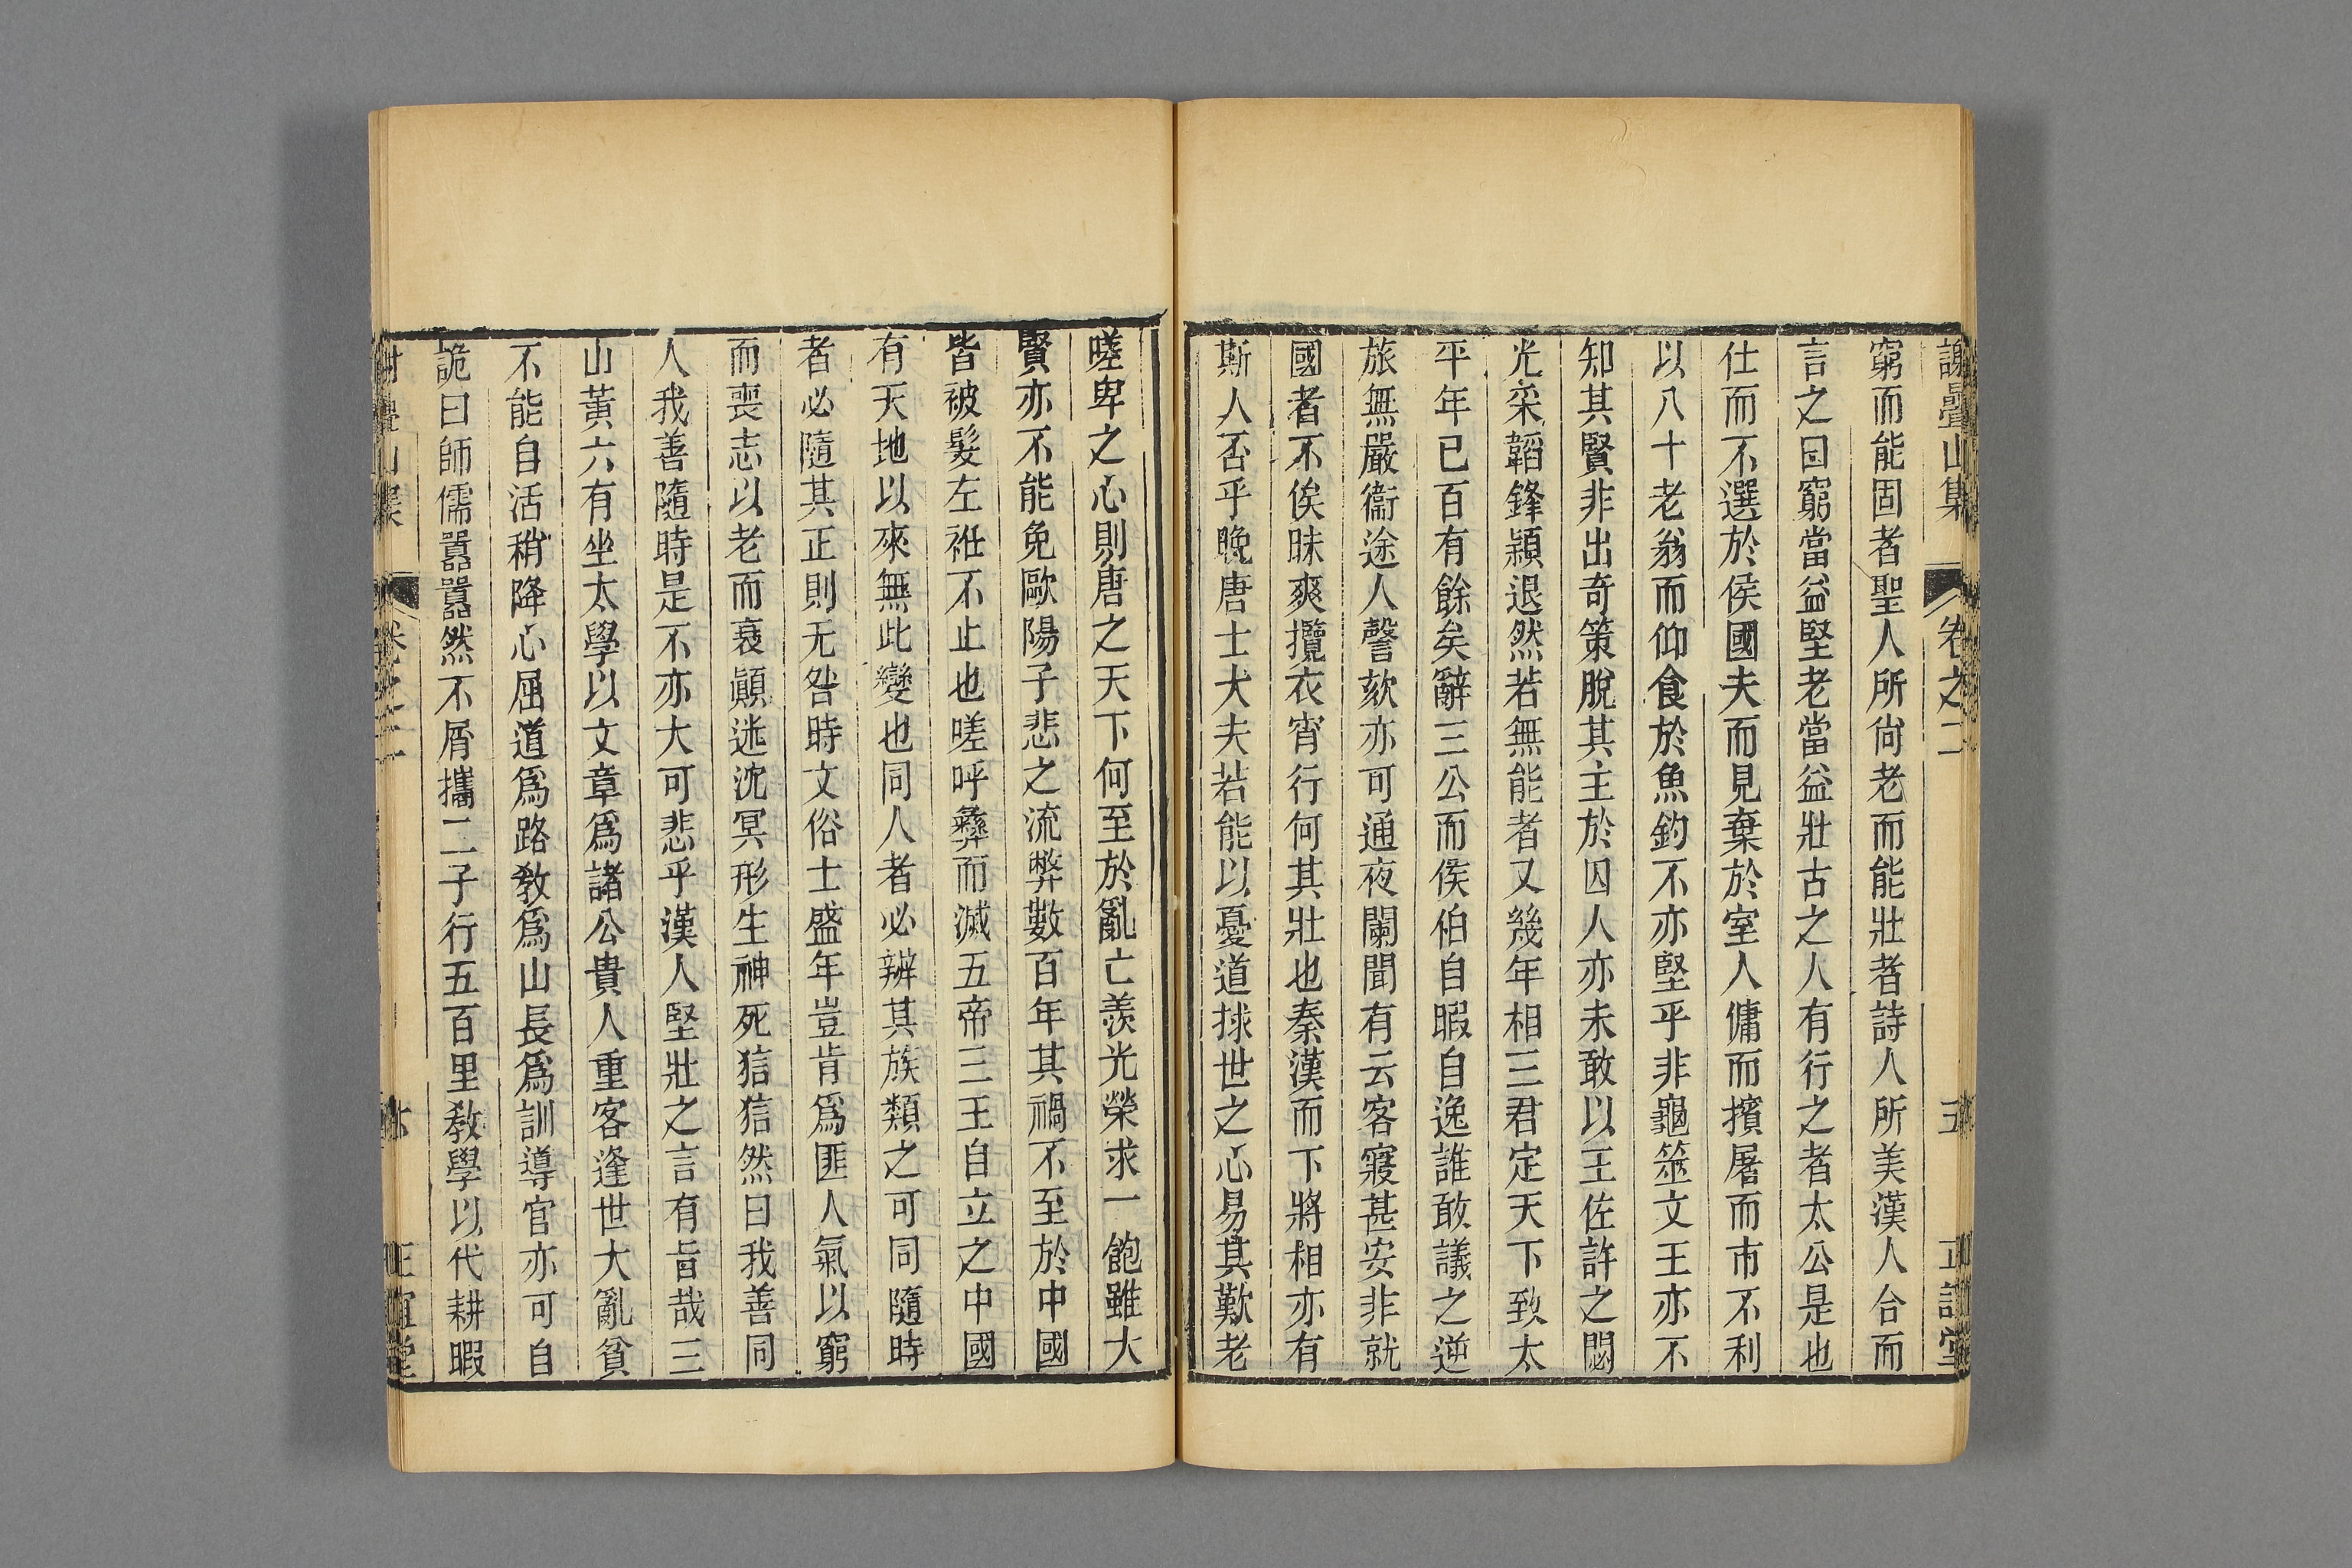 謝疊山集 卷之二 五 正誼堂
窮而能固者聖人所尙老而能壯者詩人所美漢人合而
言之曰窮當益堅老當益壯古之人有行之者太公是也
仕而不選於侯國夫而見棄於室人傭而擯屠而市不利
以八十老翁而仰食於魚釣不亦堅乎非龜筮文王亦不
知其賢非出奇策脫其主於囚人亦未敢以王佐許之閟
光采韜鋒穎退然若無能者又幾年相三君定天下致太
平年已百有餘矣辭三公而侯伯自暇自逸誰敢議之逆
旅無嚴衞途人謦欬亦可通夜闌聞有云客寢甚安非就
國者不俟昧爽攬衣宵行何其壯也秦漢而下將相亦有
斯人否乎晚唐士大夫若能以憂道捄世之心易其歎老
嗟卑之心則唐之天下何至於亂亡羨光榮求一飽雖大
賢亦不能免歐陽子悲之流弊數百年其禍不至於中國
皆被髮左袵不止也嗟呼彝而滅五帝三王自立之中國
有天地以來無此變也同人者必辨其族類之可同隨時
者必隨其正則无咎時文俗士盛年豈肯爲匪人氣以窮
而喪志以老而衰顚迷沈冥形生神死狺狺然曰我善同
人我善隨時是不亦大可悲乎漢人堅壯之言有旨哉三
山黃六有坐太學以文章爲諸公貴人重客逢世大亂貧
不能自活稍降心屈道爲路敎爲山長爲訓導官亦可自
詭曰師儒囂囂然不屑攜二子行五百里敎學以代耕暇
謝疊山集 卷之二 六 正誼堂